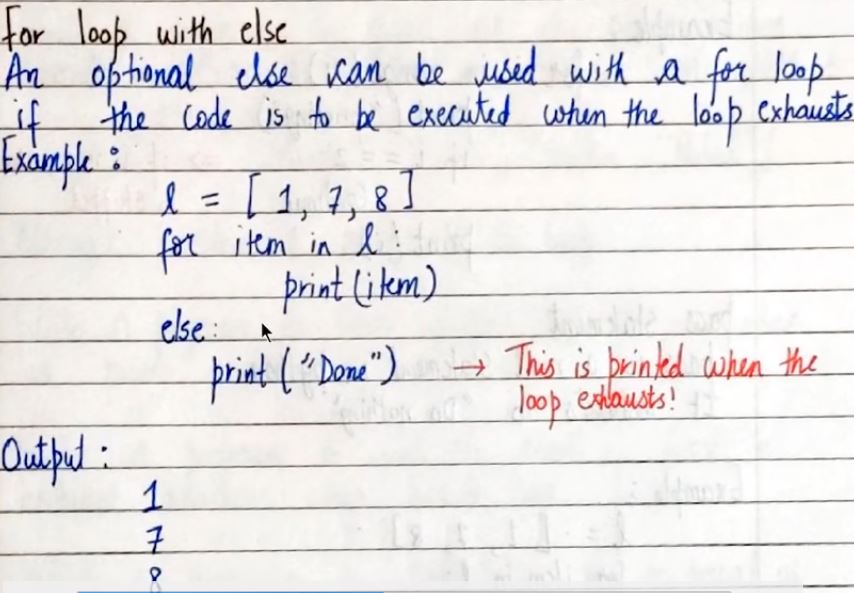 for loop with else
An optional else can be used with a for loop
if the code is to be executed when the loop exhausts
Example :
l = [ 1, 7, 8 ]
for item in l
print (item)
else :
print ( "Done" ) → This is printed when the
loop exhausts!
Output :
1
7
8